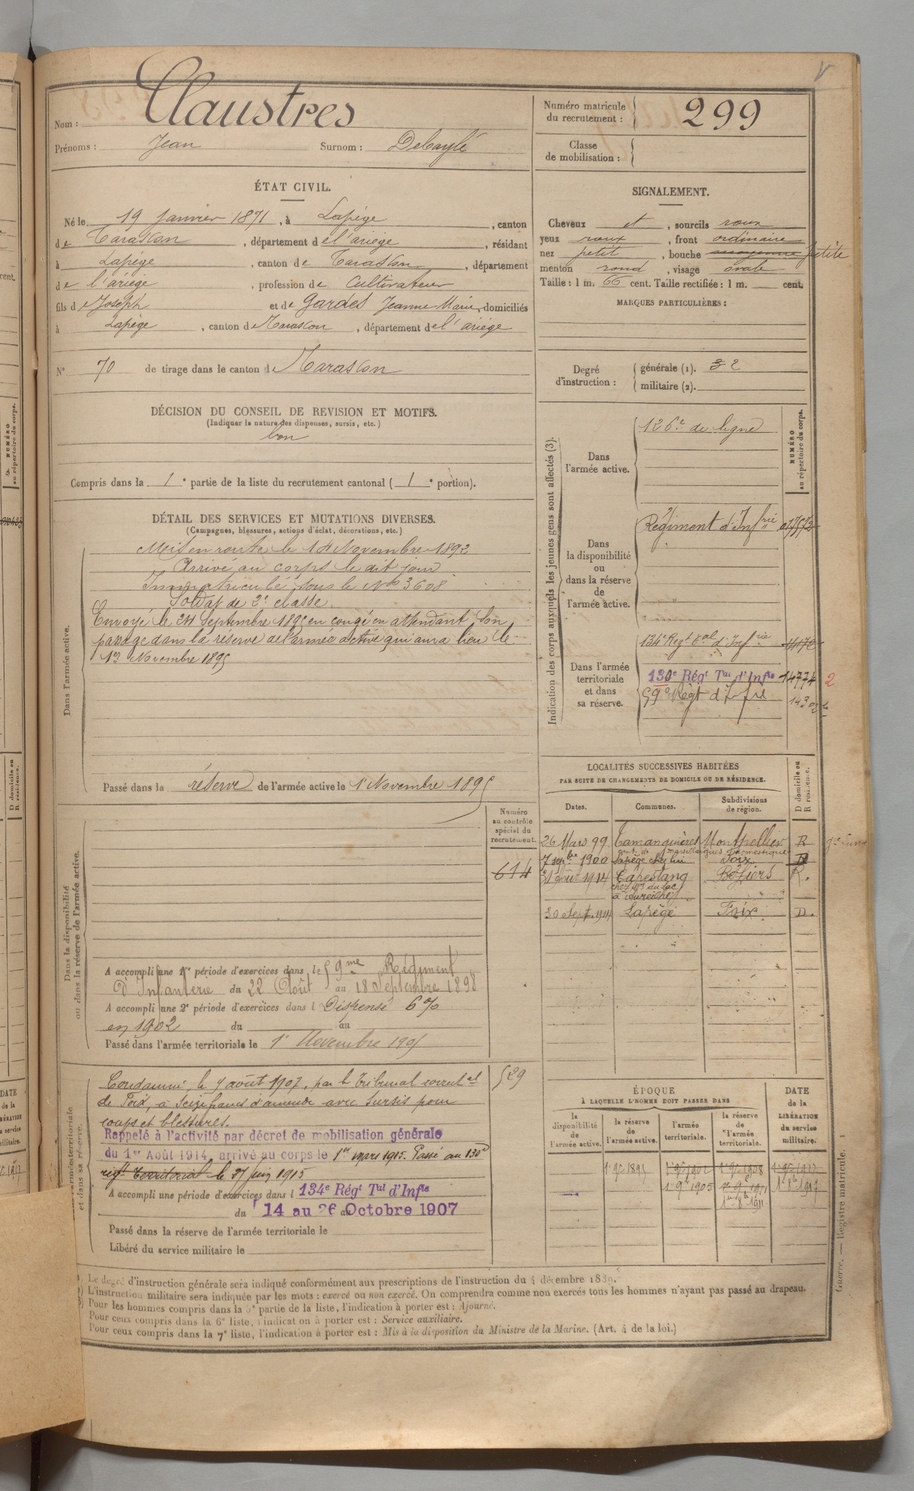 Claustres
Nom :
Prénoms : Jean Surnom : Debaylé
Numéro matricule du recrutement : 299
Classe de mobilisation :
ÉTAT CIVIL.
Né le 19 Janvier 1871, à Lapège, canton
de Tarascon, département de l'ariège, résidant
à Lapège, canton de Tarascon, département
de l'ariège, profession de Cultivateur
fils de Joseph et de Gardes Jeanne Marie, domiciliés
à Lapège, canton de Tarascon, département de l'ariège
N° 70 de tirage dans le canton de Tarascon
SIGNALEMENT.
Cheveux et, sourcils roux
yeux roux, front ordinaire
nez petit, bouche petite
menton rond, visage ovale
Taille : 1 m. 66 cent. Taille rectifiée : 1 m. cent.
MARQUES PARTICULIÈRES :
Degré d'instruction :
générale (1). 2
militaire (2).
DÉCISION DU CONSEIL DE REVISION ET MOTIFS.
(Indiquer la nature des dispenses, sursis, etc.)
bon
Compris dans la 1e partie de la liste du recrutement cantonal (1e portion).
DÉTAIL DES SERVICES ET MUTATIONS DIVERSES.
(Campagnes, blessures, actions d'éclat, décorations, etc.)
Dans l'armée active.
Mis en route le 14 Novembre 1892
Arrivé au corps le dit jour
Immatriculé sous le No 3608
Soldat de 2e classe
Envoyé le 24 Septembre 1895 en congé en attendant son
passage dans la réserve de l'armée active qui aura lieu le
1er Novembre 1895
Passé dans la réserve de l'armée active le 1er Novembre 1895
Indication des corps auxquels les jeunes gens sont affectés (3).
NUMÉRO au répertoire du corps.
Dans l'armée active.
126e de ligne
Dans la disponibilité ou dans la réserve de l'armée active.
Régiment d'Infrie
Dans l'armée territoriale et dans sa réserve.
134e Régt Tal d'Infrie
130e Régt Tal d'Infie 14774 2
59e Régt d'Infrie
LOCALITÉS SUCCESSIVES HABITÉES
PAR SUITE DE CHANGEMENTS DE DOMICILE OU DE RÉSIDENCE.
Dates. Communes. Subdivisions de région. D domicile ou R résidence.
26 Mars 99 Montpellier R
7 sepbre 1900 Lapège Foix D
1914 Capestang Béziers R.
30 Sept. 1914 Lapège Foix D.
Numéro au contrôle spécial du recrutement.
614
Dans la disponibilité ou dans la réserve de l'armée active.
A accompli une 1re période d'exercices dans le 59me Régiment
D'Infanterie du 22 Août au 18 Septembre 1898
A accompli une 2e période d'exercices dans l Dispensé 6%
en 1902 du au
Passé dans l'armée territoriale le 1er Novembre 1905
529
Condamné le 7 août 1907, par le Tribunal correctel
de Foix, à Seize francs d'amende avec sursis pour
coups et blessures.
Rappelé à l'activité par décret de mobilisation générale
du 1er Août 1914, arrivé au corps le 1er mars 1915. Passé au 130e
régt territorial le 27 juin 1915
A accompli une période d'exercices dans l 134e Régt Tal d'Infie
du 14 au 26 Octobre 1907
Passé dans la réserve de l'armée territoriale le
Libéré du service militaire le
ÉPOQUE
À LAQUELLE L'HOMME DOIT PASSER DANS
la disponibilité de l'armée active. la réserve de l'armée active. l'armée territoriale. la réserve de l'armée territoriale.
DATE de la LIBÉRATION du service militaire.
1er 9bre 1895
1er 9bre 1905
Le degré d'instruction générale sera indiqué conformément aux prescriptions de l'instruction du 4 décembre 1889.
L'instruction militaire sera indiquée par les mots : exercé ou non exercé. On comprendra comme non exercés tous les hommes n'ayant pas passé au drapeau.
Pour les hommes compris dans la 5e partie de la liste, l'indication à porter est : Ajourné.
Pour ceux compris dans la 6e liste, l'indication à porter est : Service auxiliaire.
Pour ceux compris dans la 7e liste, l'indication à porter est : Mis à la disposition du Ministre de la Marine. (Art. 4 de la loi.)
Guerre. — Registre matricule.